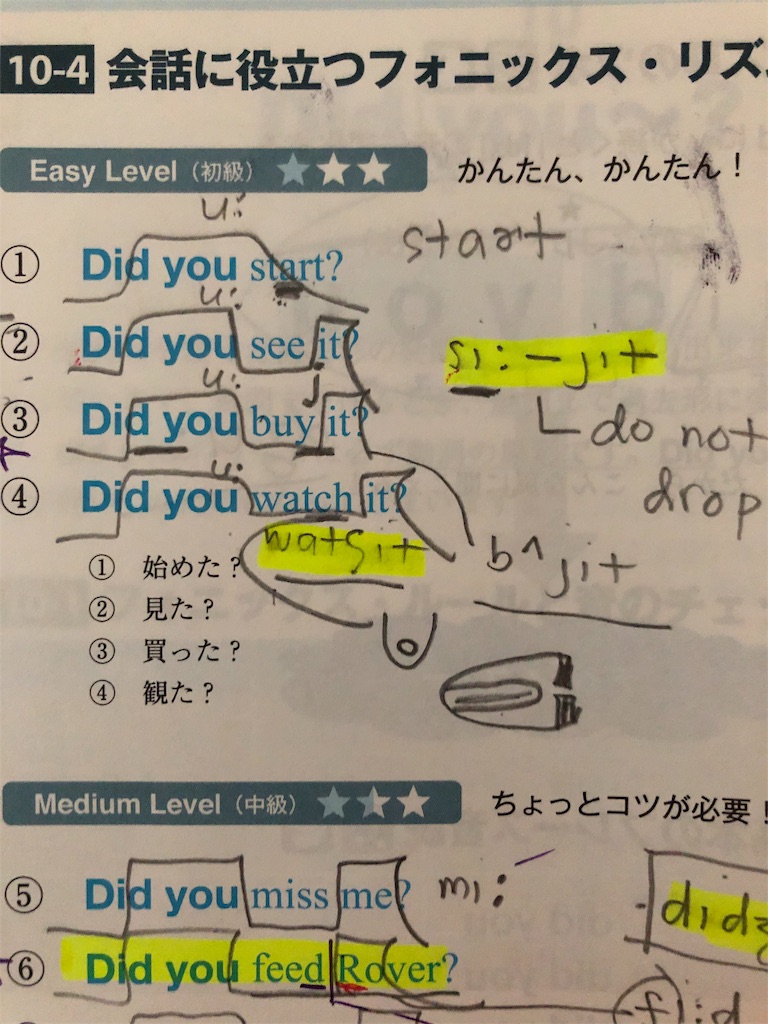 10-4 会話に役立つフォニックス・リズ
Easy Level（初級）★★★ かんたん、かんたん！
u:
① Did you start? start
u:
② Did you see it? si:-jit
u: j
③ Did you buy it? do not
drop
u:
④ Did you watch it?
watʃit
bʌjit
① 始めた？
② 見た？
③ 買った？
④ 観た？
Medium Level（中級）★★★ ちょっとコツが必要！
⑤ Did you miss me? mi:
⑥ Did you feed Rover?